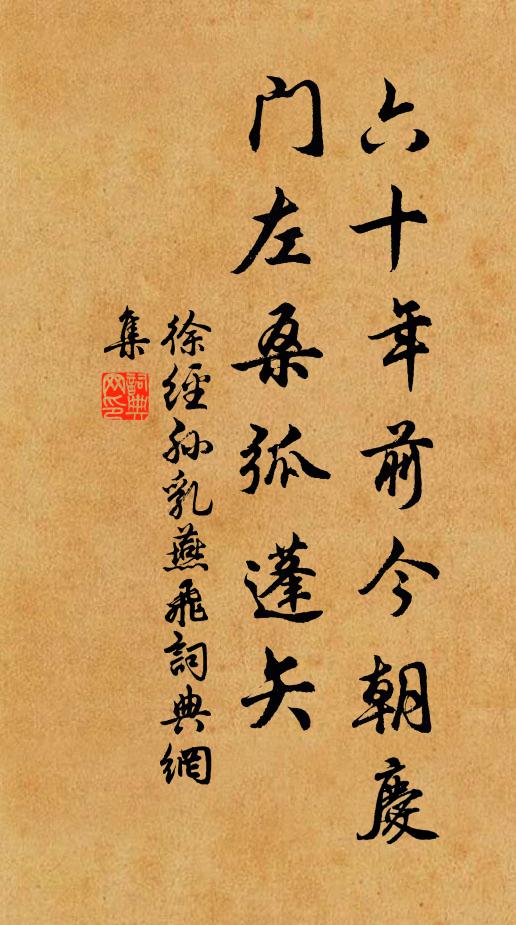 六十年前今朝慶
门左桑弧蓬矢
徐經孙乳燕飛詞典網
集
詞典
网印